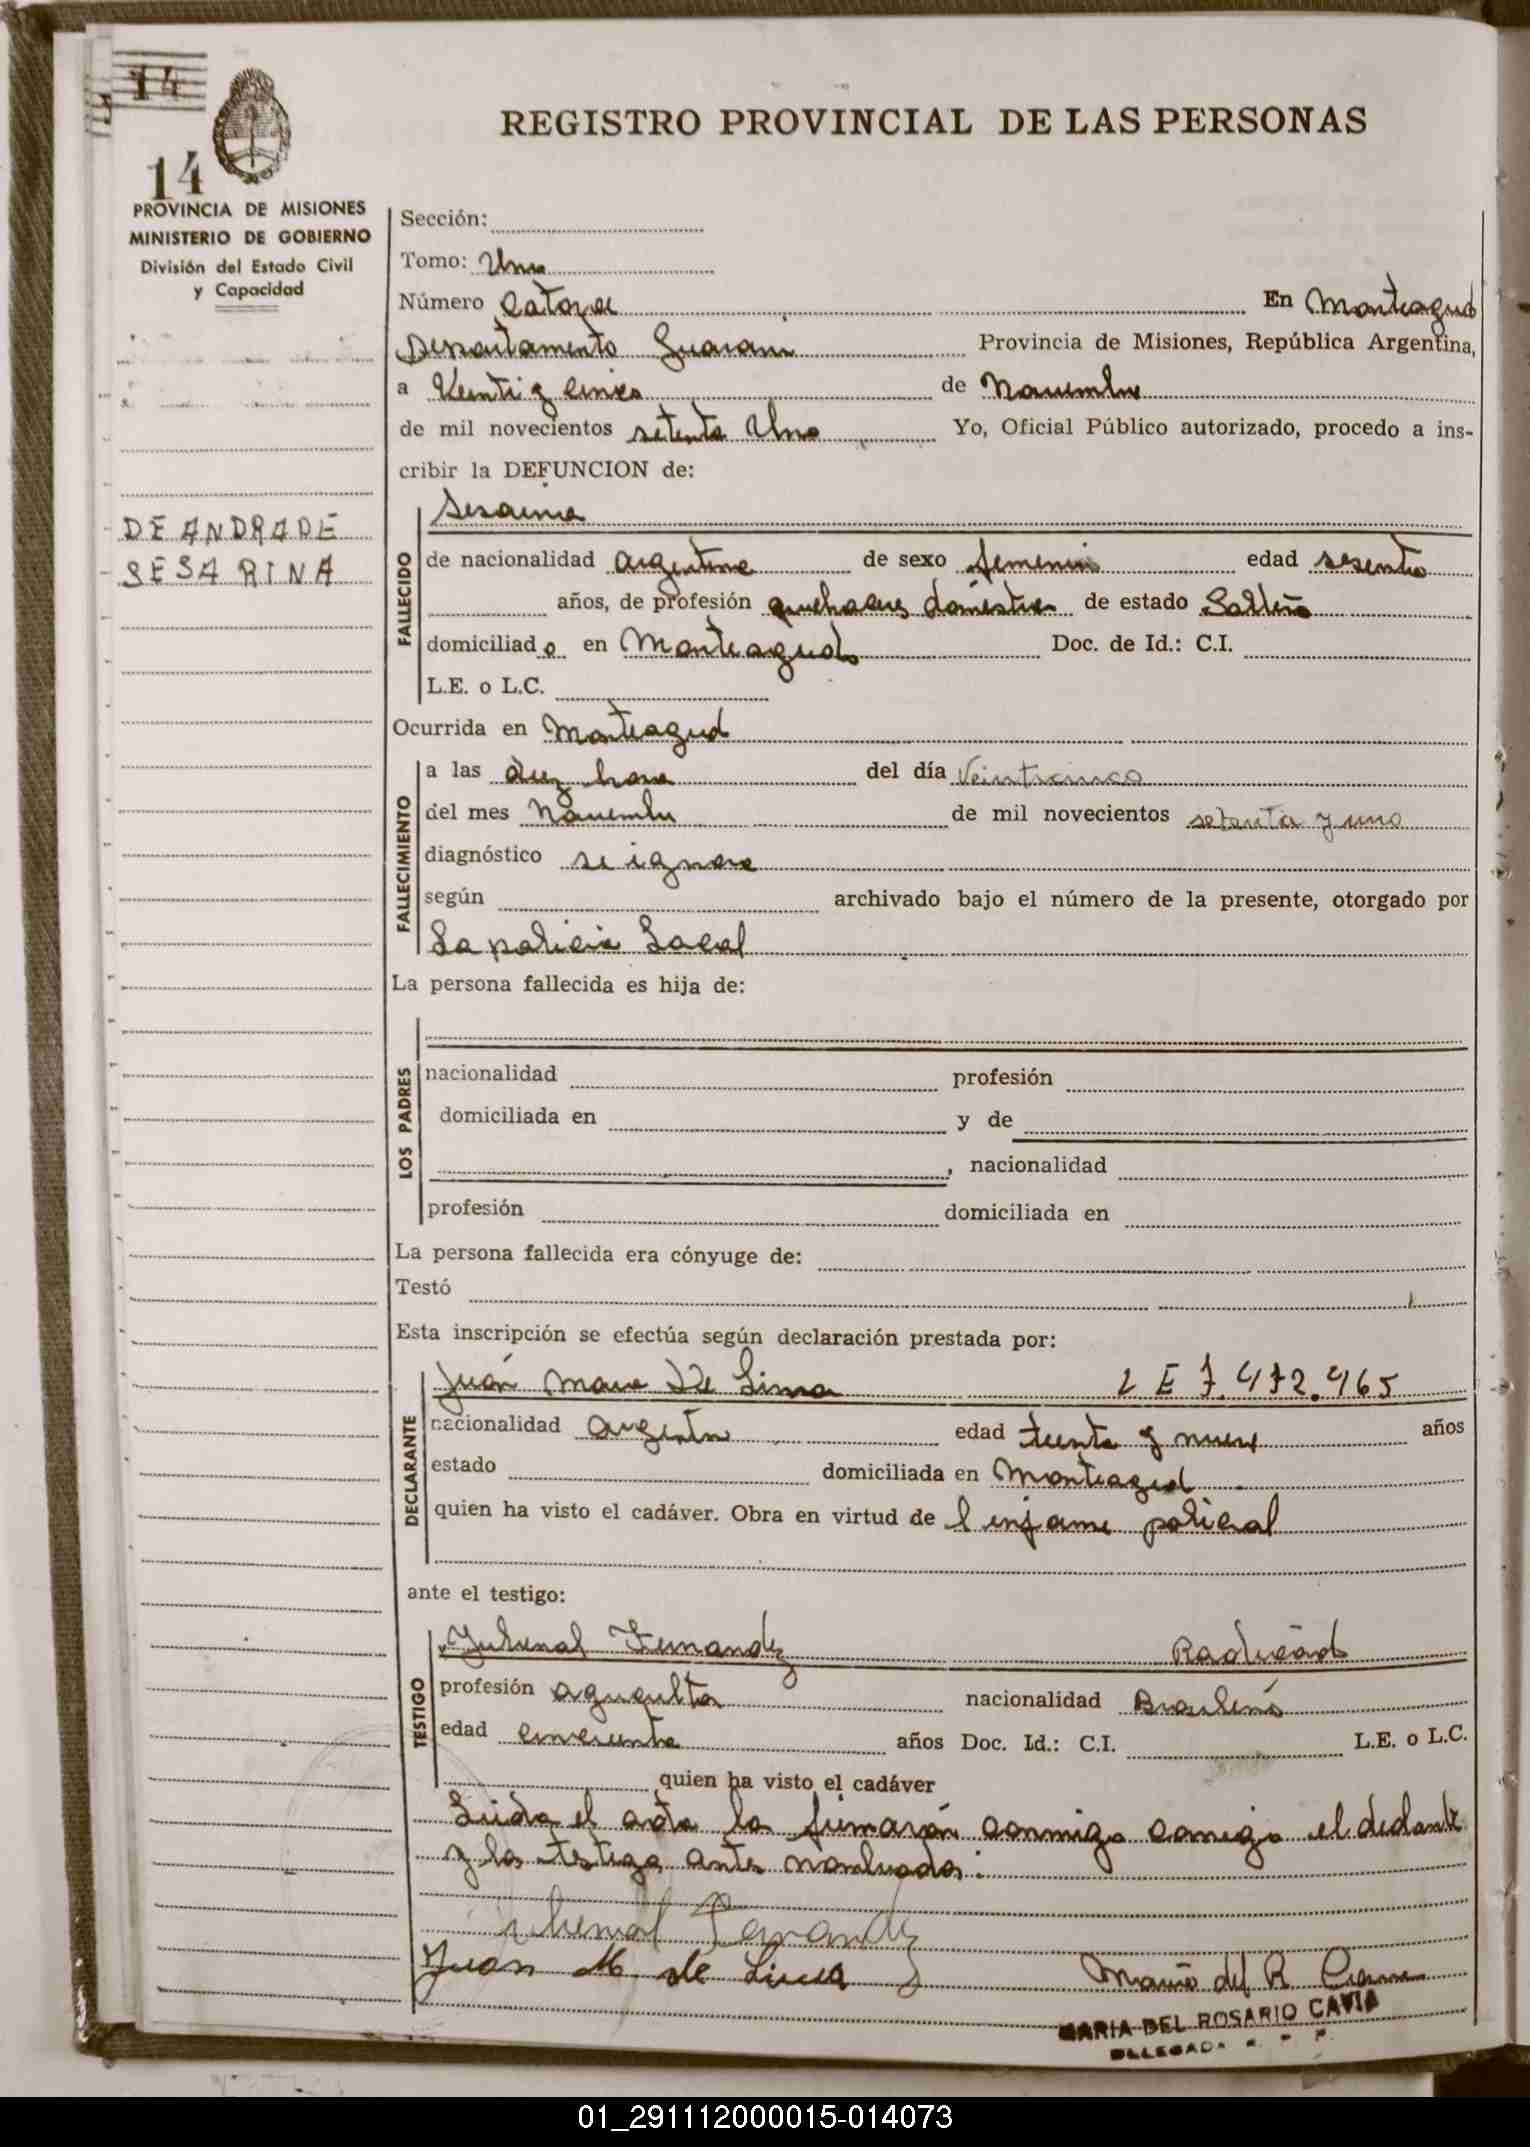 14
14
REGISTRO PROVINCIAL DE LAS PERSONAS
PROVINCIA DE MISIONES
MINISTERIO DE GOBIERNO
División del Estado Civil
y Capacidad
DE ANDRADE
SESARINA
Sección:
Tomo: Uno
Número Catorce En Monteagud
Departamento Guarani Provincia de Misiones, República Argentina,
a Veinti y cinco de Noviembre
de mil novecientos setenta Uno Yo, Oficial Público autorizado, procedo a ins-
cribir la DEFUNCION de:
FALLECIDO
de nacionalidad argentina de sexo femenino edad sesenta
años, de profesión quehaceres domestico de estado Soltera
domiciliad o en Monteagudo Doc. de Id.: C.I.
L.E. o L.C.
Ocurrida en Monteagud
FALLECIMIENTO
a las diez hora del día Veinticinco
del mes Noviembre de mil novecientos setenta y uno
diagnóstico se ignora
según archivado bajo el número de la presente, otorgado por
La policia Local
La persona fallecida es hija de:
LOS PADRES
nacionalidad profesión
domiciliada en y de
, nacionalidad
profesión domiciliada en
La persona fallecida era cónyuge de:
Testó
Esta inscripción se efectúa según declaración prestada por:
DECLARANTE
Juan Maria De Lima L E 7.472.465
nacionalidad argentino edad treinta y nueve años
estado domiciliada en Monteagud
quien ha visto el cadáver. Obra en virtud de l informe policial
ante el testigo:
TESTIGO
Juvenal Fernandez Radicado
profesión agricultor nacionalidad Brasileño
edad cincuenta años Doc. Id.: C.I. L.E. o L.C.
quien ha visto el cadáver
Leida el acta la firmarón conmigo el
y los testigo antes nombrados.
Juvenal Fernandez
Juan M. de Lima Maria del R Cavia
MARIA DEL ROSARIO CAVIA
DELEGADA
01_291112000015-014073